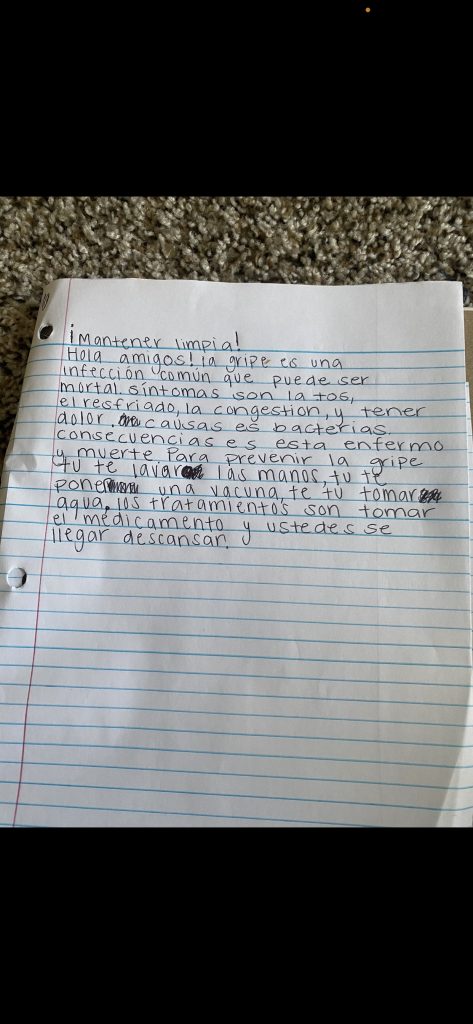 ¡Mantener limpia!
Hola amigos! la gripe es una
infección común que puede ser
mortal. síntomas son la tos,
el resfriado, la congestion, y tener
dolor. causas es bacterias.
consecuencias es esta enfermo
y muerte. Para prevenir la gripe
tu te lavar las manos, tu te
pone una vacuna, te tu tomar
agua. los tratamientos son tomar
el medicamento y ustedes se
llegar descansar.